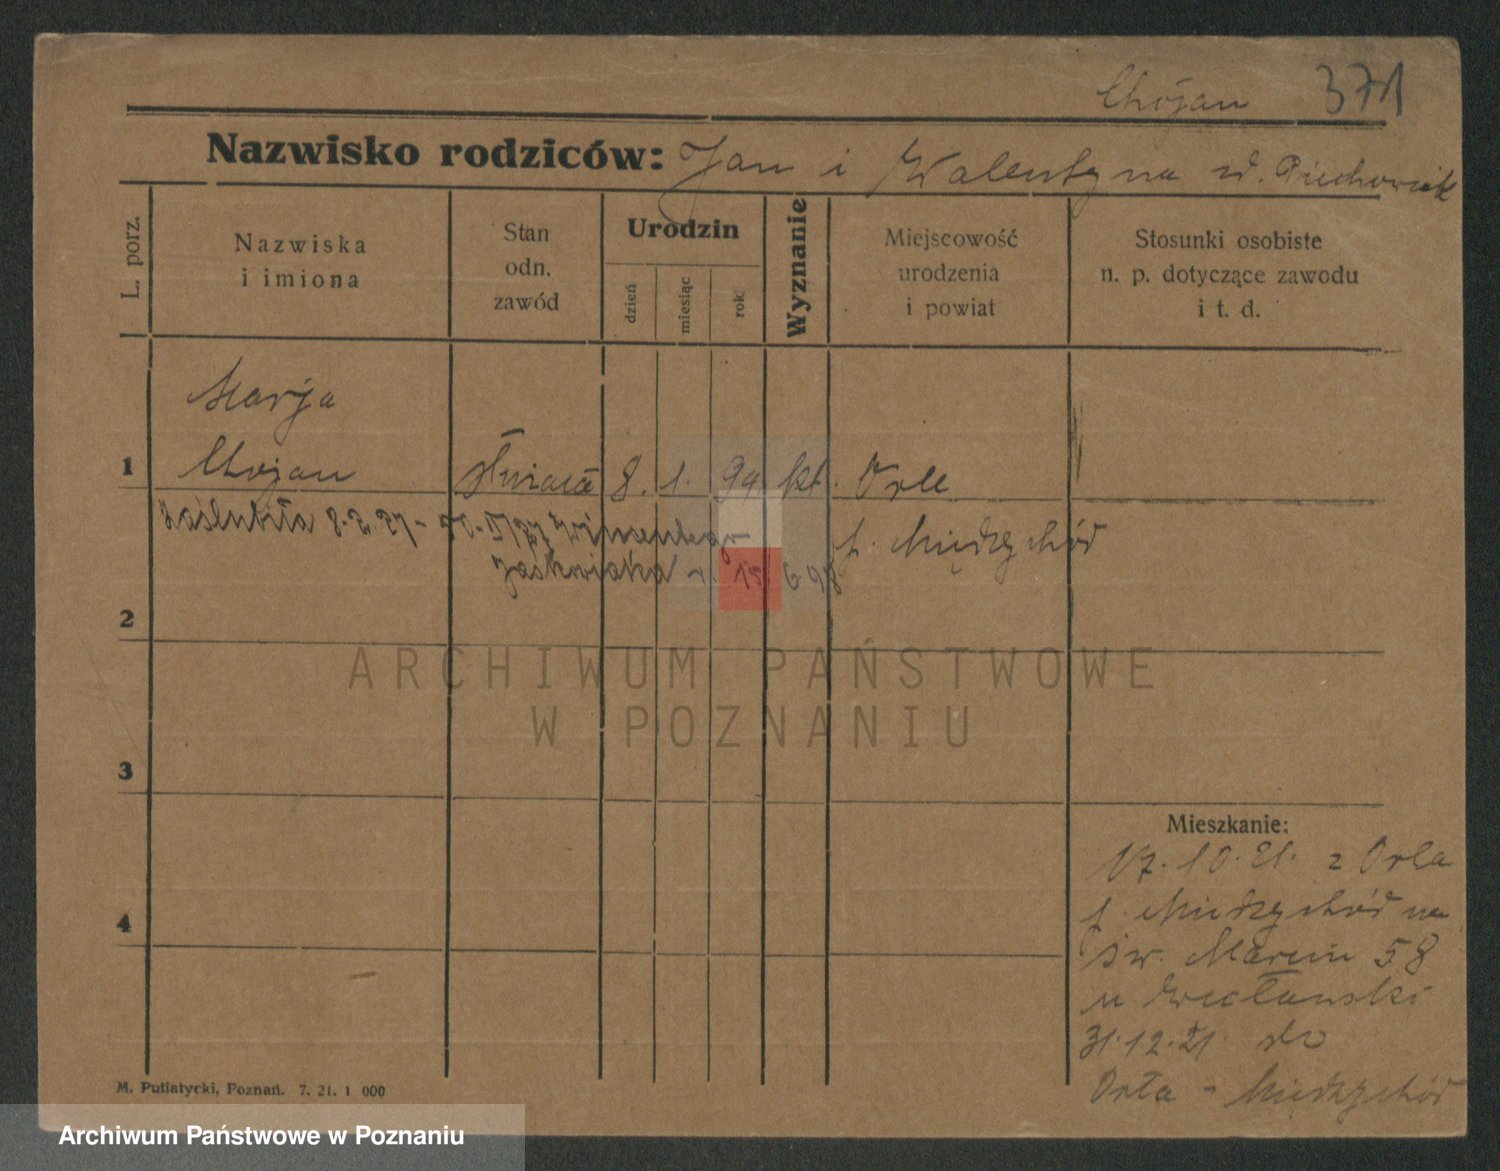 Chojan 371
Nazwisko rodziców: Jan i Walentyna ur. Piechowiak
L. porz.
Nazwiska
i imiona
Stan
odn.
zawód
Urodzin
dzień
miesiąc
rok
Wyznanie
Miejscowość
urodzenia
i powiat
Stosunki osobiste
n. p. dotyczące zawodu
i t. d.
Marja
1 Chojan służąca 8. 1. 99 kt. Orle
Zaślubiła 8.2.27 - Wincentego p. Międzychód
Jaskwiaka 15 6 98
2
ARCHIWUM PAŃSTWOWE
W POZNANIU
3
Mieszkanie:
17.10.21. z Orla
p. Międzychód na
4
św. Marcin 58
u Więcławski
31.12.21. do
Orla - Międzychód
M. Putiatycki, Poznań. 7. 21. 1 000
Archiwum Państwowe w Poznaniu